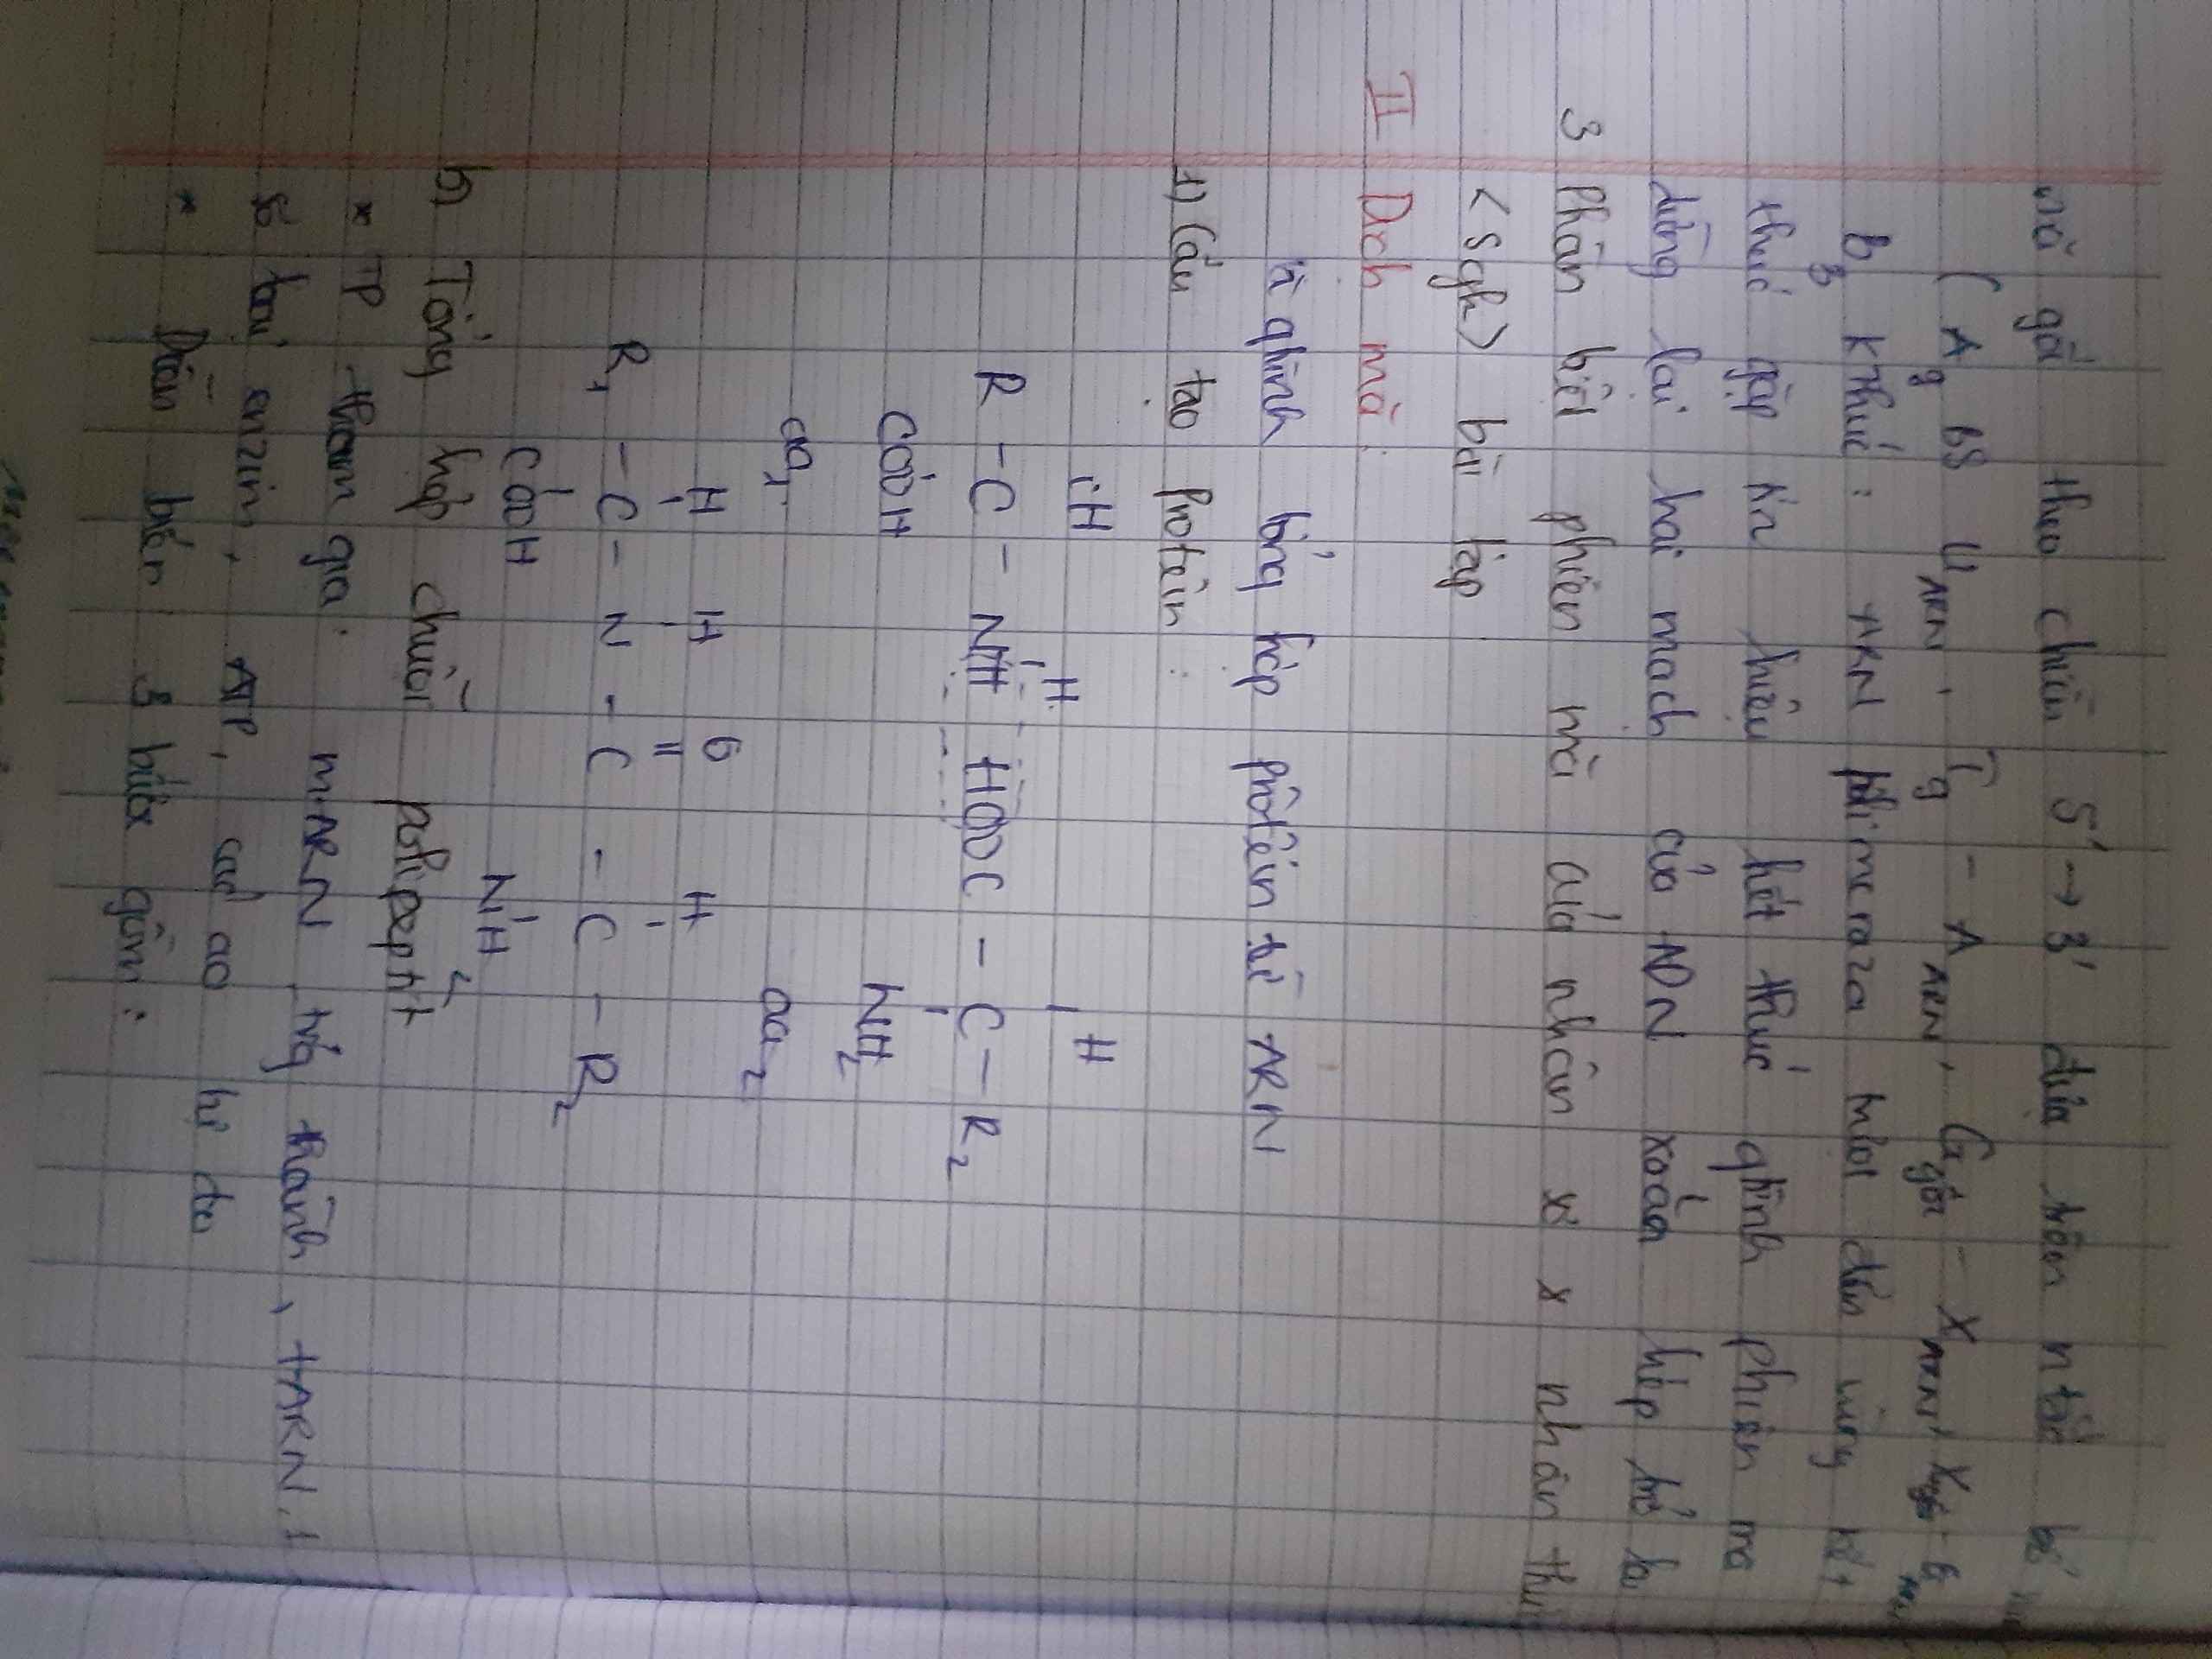 mã gốc theo chiều 5' → 3' dựa trên n tắc bổ
( Ag BS UARN, Tg - A ARN, Ggốc - X ARN, Xgốc - G
B3 K thúc : ARN polimeraza mới đến vùng kết
thúc gặp tín hiệu kết thúc qtrình phiên mã
dừng lại hai mạch của ADN xoắn
3 Phân biệt phiên mã của nhân sơ x nhân thực
< Sgk > bài tập
II Dịch mã :
là qtrình tổng hợp protein từ ARN
1) Cấu tạo Protein :
H H H
R - C - NH HOOC - C - R2
COOH NH2
aa1 aa2
H H O H
R1 - C - N - C - C - R2
COOH NH
b) Tổng hợp chuỗi polipeptit
* TP tham gia : mARN trưởng thành , tARN, 1
số loại enzin, ATP, các aa tự do
* Diễn biến : 3 bước gồm :